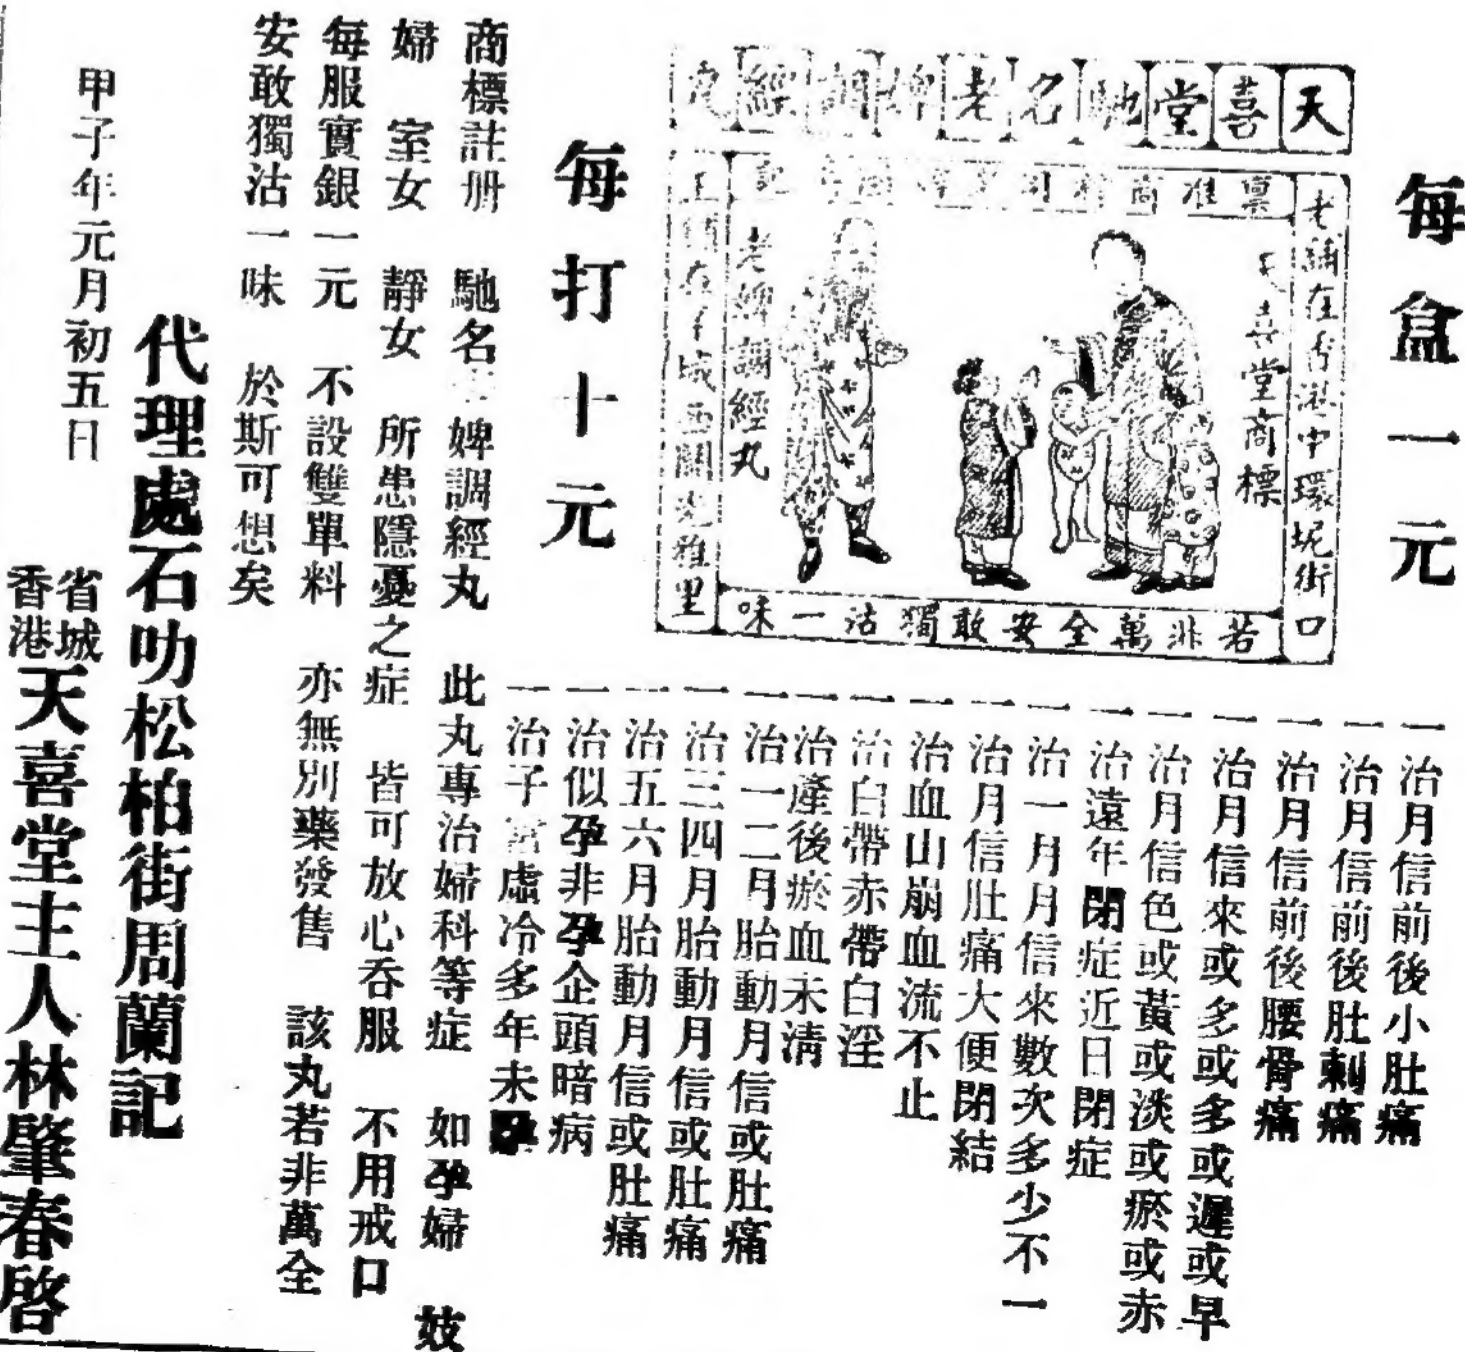 每盒一元
天喜堂馳名老婢調經丸
稟准商標
老舖在香港中環坭街口
天喜堂商標
老婢調經丸
城西關光雅里
若非萬全安敢獨沽一味
每打十元
一治月信前後小肚痛
一治月信前後肚刺痛
一治月信前後腰骨痛
一治月信來或多或多或遲或早
一治月信色或黃或淡或瘀或赤
一治遠年閉症近日閉症
一治一月月信來數次多少不一
一治月信肚痛大便閉結
一治血山崩血流不止
一治白帶赤帶白淫
一治產後瘀血未清
一治一二月胎動月信或肚痛
一治三四月胎動月信或肚痛
一治五六月胎動月信或肚痛
一治似孕非孕企頭暗病
一治子宮虛冷多年未孕
商標註册 馳名老婢調經丸 此丸專治婦科等症 如孕婦 妓
婦 室女 靜女 所患隱憂之症 皆可放心呑服 不用戒口
每服實銀一元 不設雙單料 亦無別藥發售 該丸若非萬全
安敢獨沽一味 於斯可想矣
代理處石叻松柏街周蘭記
甲子年元月初五日
省城
香港
天喜堂主人林肇春啓